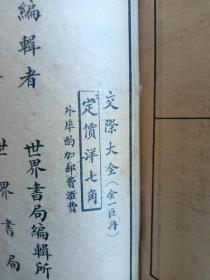 交際大全（全一巨冊）
定價洋七角
外埠酌加郵費滙費
編輯者
世界書局編輯所
世界書局